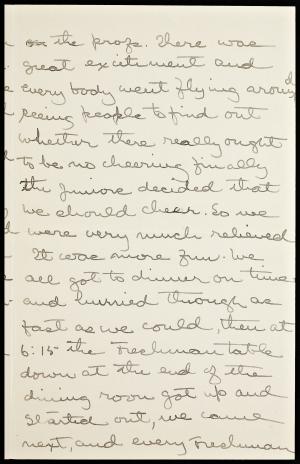 the profs. There was
great excitement and
every body went flying around
seeing people to find out
whether there really ought
to be no cheering finally
the Juniors decided that
we should cheer. So we
were very much relieved
It was more fun. We
all got to dinner on time
and hurried through as
fast as we could, then at
6:15 the Freshman table
down at the end of the
dining room got up and
started out, we came
next, and every Freshman